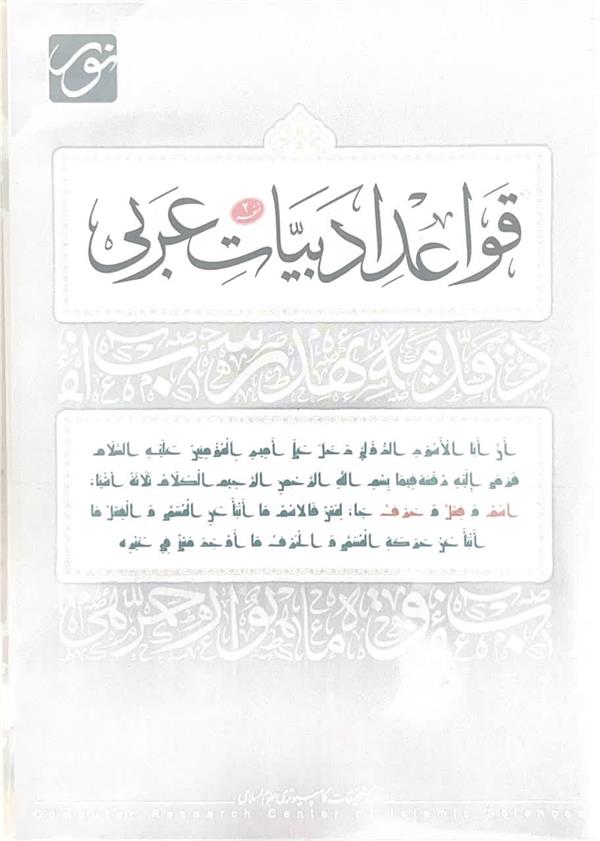 نور
قواعد ادبیّاتِ عربی
نسخه ۲
أن أبا الأسود الدؤلي دخل على أمير المؤمنين عليه السلام
فرمى إليه رقعة فيها بسم الله الرحمن الرحيم الكلام ثلاثة أشياء
اسم و فعل و حرف جاء لمعنى فالاسم ما أنبأ عن المسمى و الفعل ما
أنبأ عن حركة المسمى و الحرف ما أوجد معنى في غيره
مرکز تحقیقات کامپیوتری علوم اسلامی
Computer Research Center of Islamic Sciences